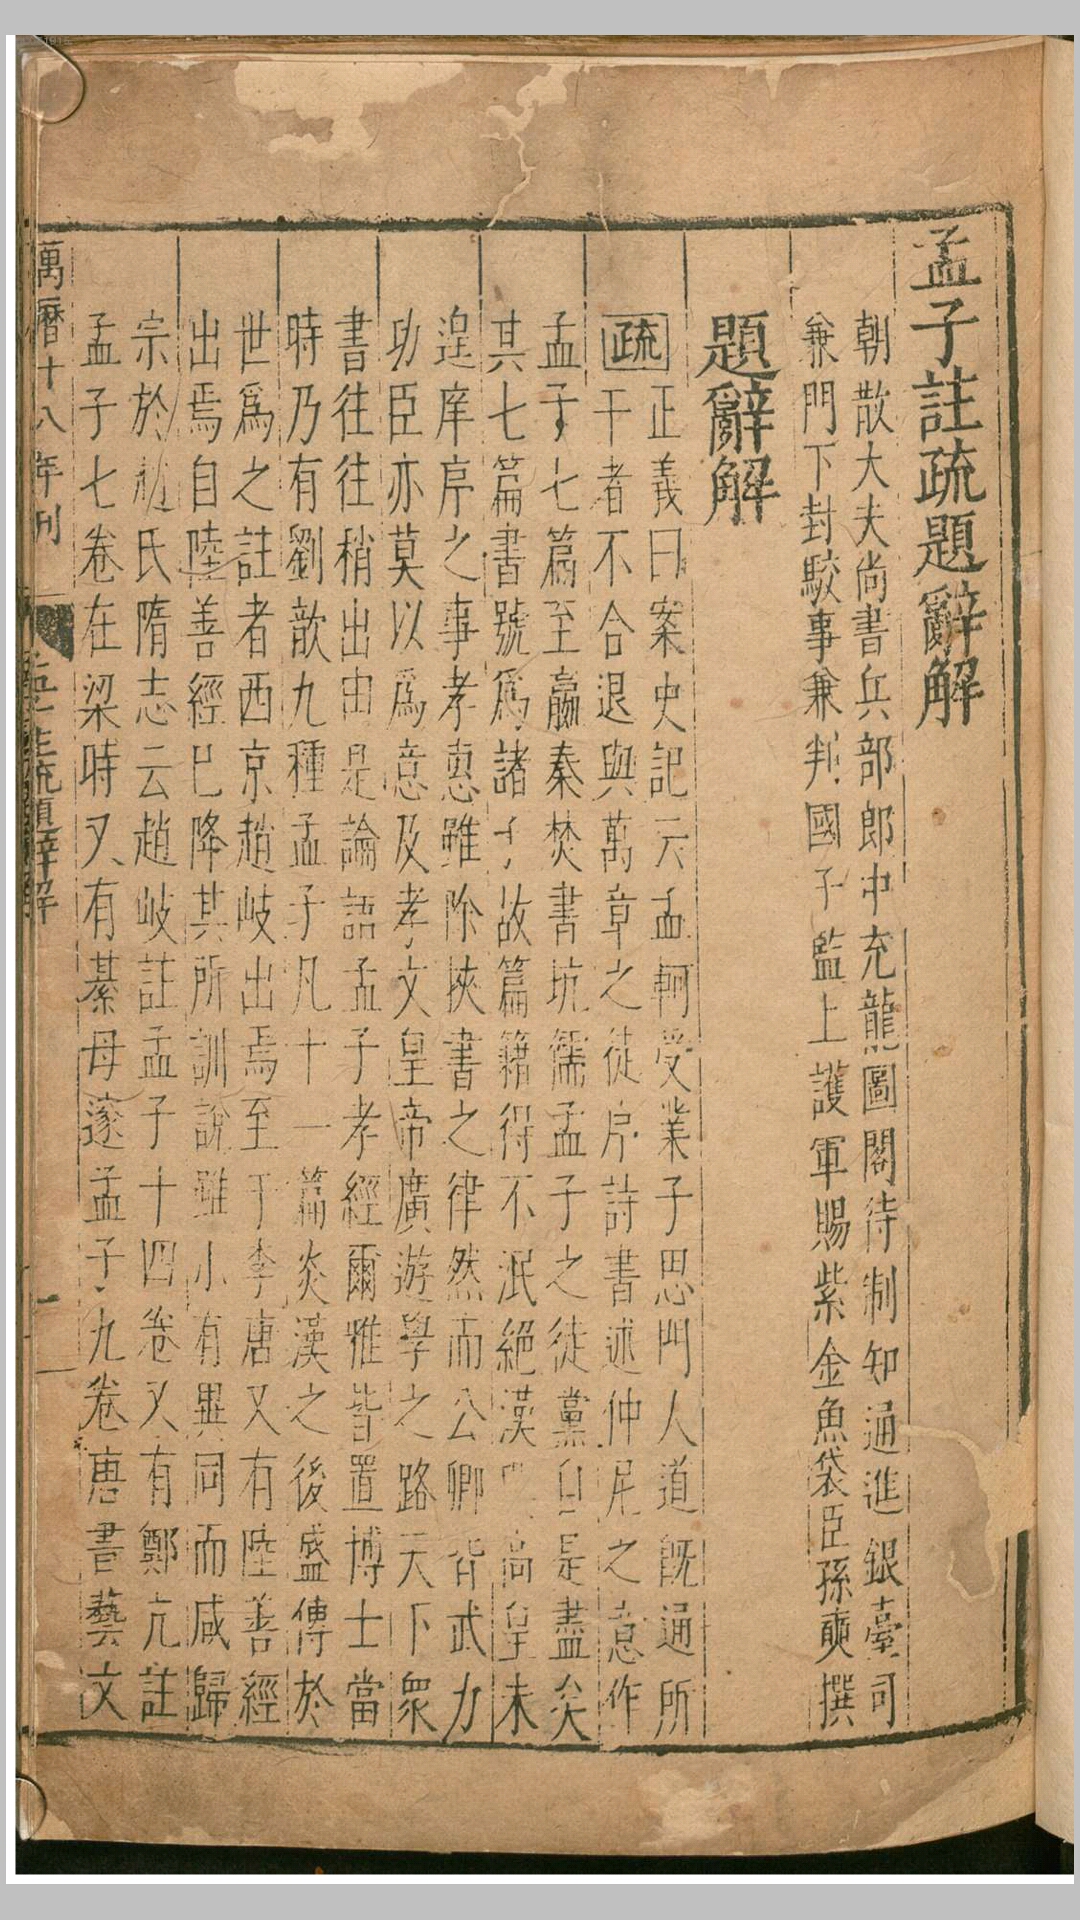 孟子註疏題辭解
朝散大夫尚書兵部郎中充龍圖閣待制知通進銀臺司
兼門下封駮事兼判國子監上護軍賜紫金魚袋臣孫奭撰
題辭解
疏
正義曰案史記云孟軻受業子思門人道既通所
干者不合退與萬章之徒序詩書述仲尼之意作
孟子七篇至嬴秦焚書坑儒孟子之徒黨自是盡矣
其七篇書號爲諸子故篇籍得不泯絕漢高皇未
遑庠序之事孝惠雖除挾書之律然而公卿皆武力
功臣亦莫以爲意及孝文皇帝廣遊學之路天下衆
書往往稍出由是論語孟子孝經爾雅皆置博士當
時乃有劉歆九種孟子凡十一篇炎漢之後盛傳於
世爲之註者西京趙岐出焉至于李唐又有陸善經
出焉自陸善經已降其所訓說雖小有異同而咸歸
宗於趙氏隋志云趙岐註孟子十四卷又有鄭亢註
孟子七卷在梁時又有綦母邃孟子九卷唐書藝文
萬曆十八年刊
孟子註疏題辭解
一